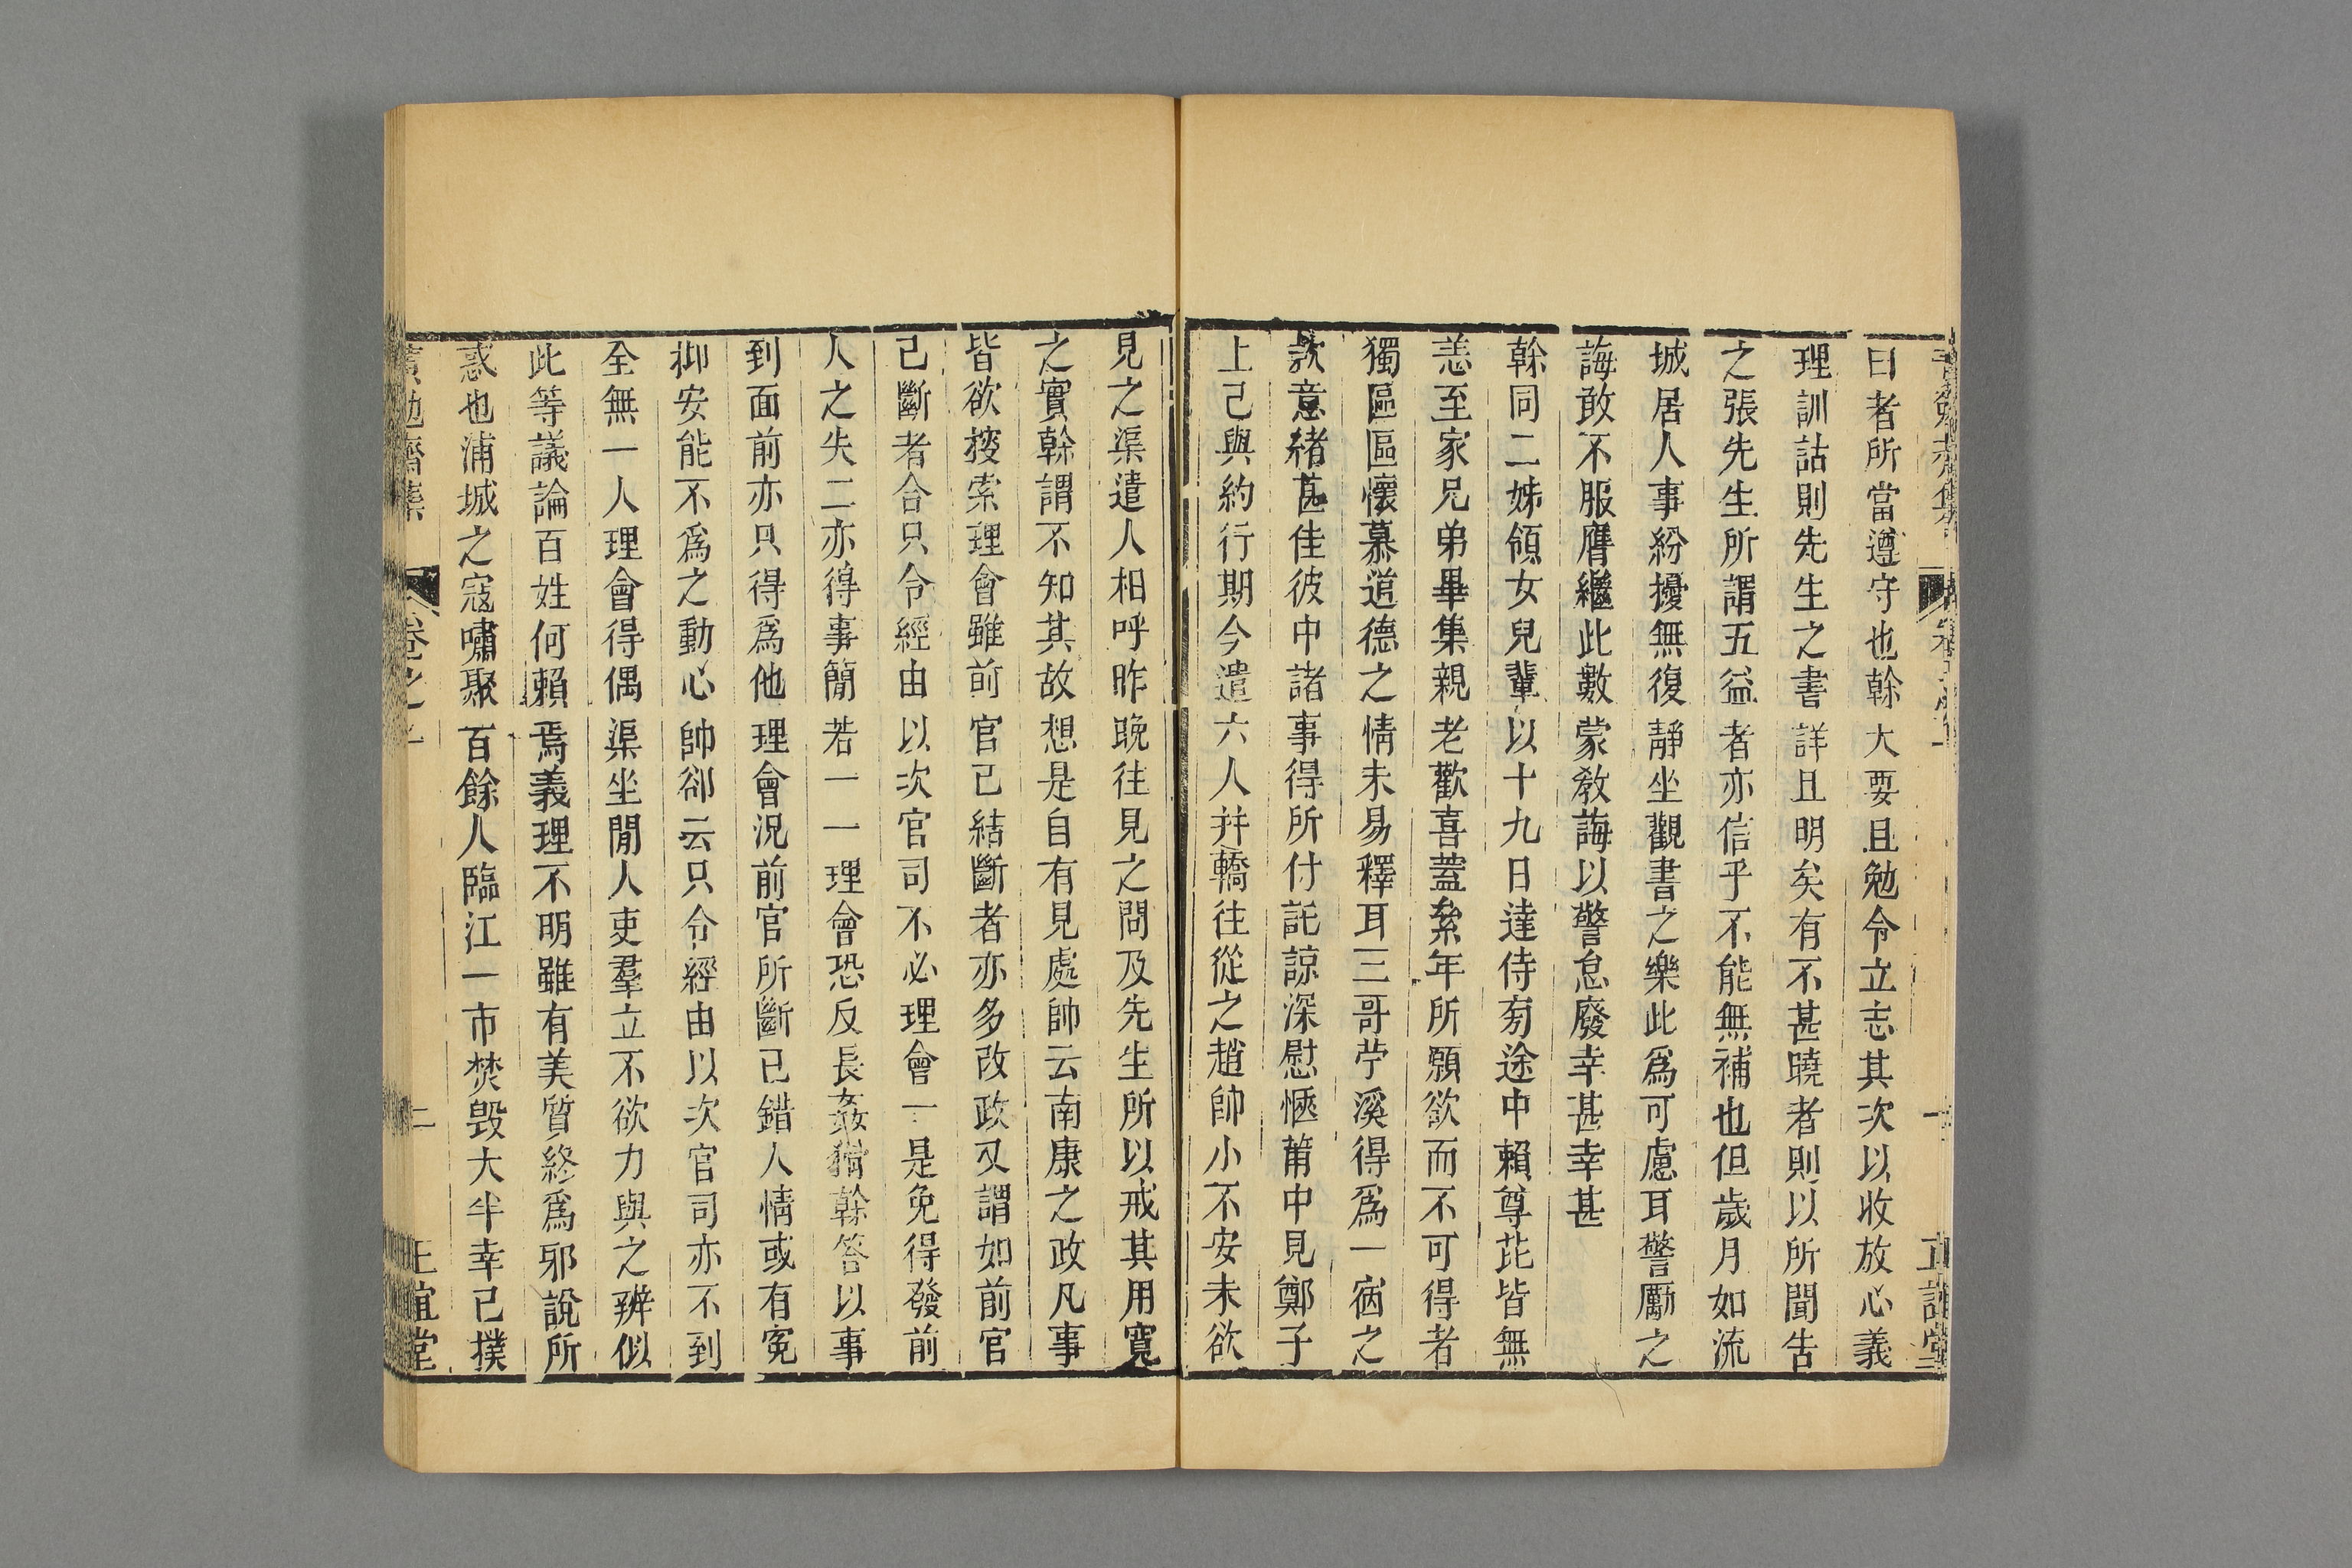 曰者所當遵守也榦大要且勉令立志其次以收放心義
理訓詁則先生之書詳且明矣有不甚曉者則以所聞告
之張先生所謂五益者亦信乎不能無補也但歲月如流
城居人事紛擾無復靜坐觀書之樂此爲可慮耳警勵之
誨敢不服膺繼此數蒙敎誨以警怠廢幸甚幸甚
榦同二姊領女兒輩以十九日達侍旁途中賴尊芘皆無
恙至家兄弟畢集親老歡喜蓋絫年所願欲而不可得者
獨區區懷慕道德之情未易釋耳三哥苧溪得爲一宿之
款意緒甚佳彼中諸事得所付託諒深慰愜莆中見鄭子
上已與約行期今遣六人并轎往從之趙帥小不安未欲
見之渠遣人相呼昨晚往見之問及先生所以戒其用寬
之實榦謂不知其故想是自有見處帥云南康之政凡事
皆欲搜索理會雖前官已結斷者亦多改政又謂如前官
已斷者合只令經由以次官司不必理會一是免得發前
人之失二亦得事簡若一一理會恐反長姦猾榦答以事
到面前亦只得爲他理會況前官所斷已錯人情或有寃
抑安能不爲之動心帥卻云只令經由以次官司亦不到
全無一人理會得偶渠坐閒人吏羣立不欲力與之辨似
此等議論百姓何賴焉義理不明雖有美質終爲邪說所
惑也浦城之寇嘯聚百餘人臨江一市焚毀大半幸已撲
黃勉齋集 卷之一 二 正誼堂